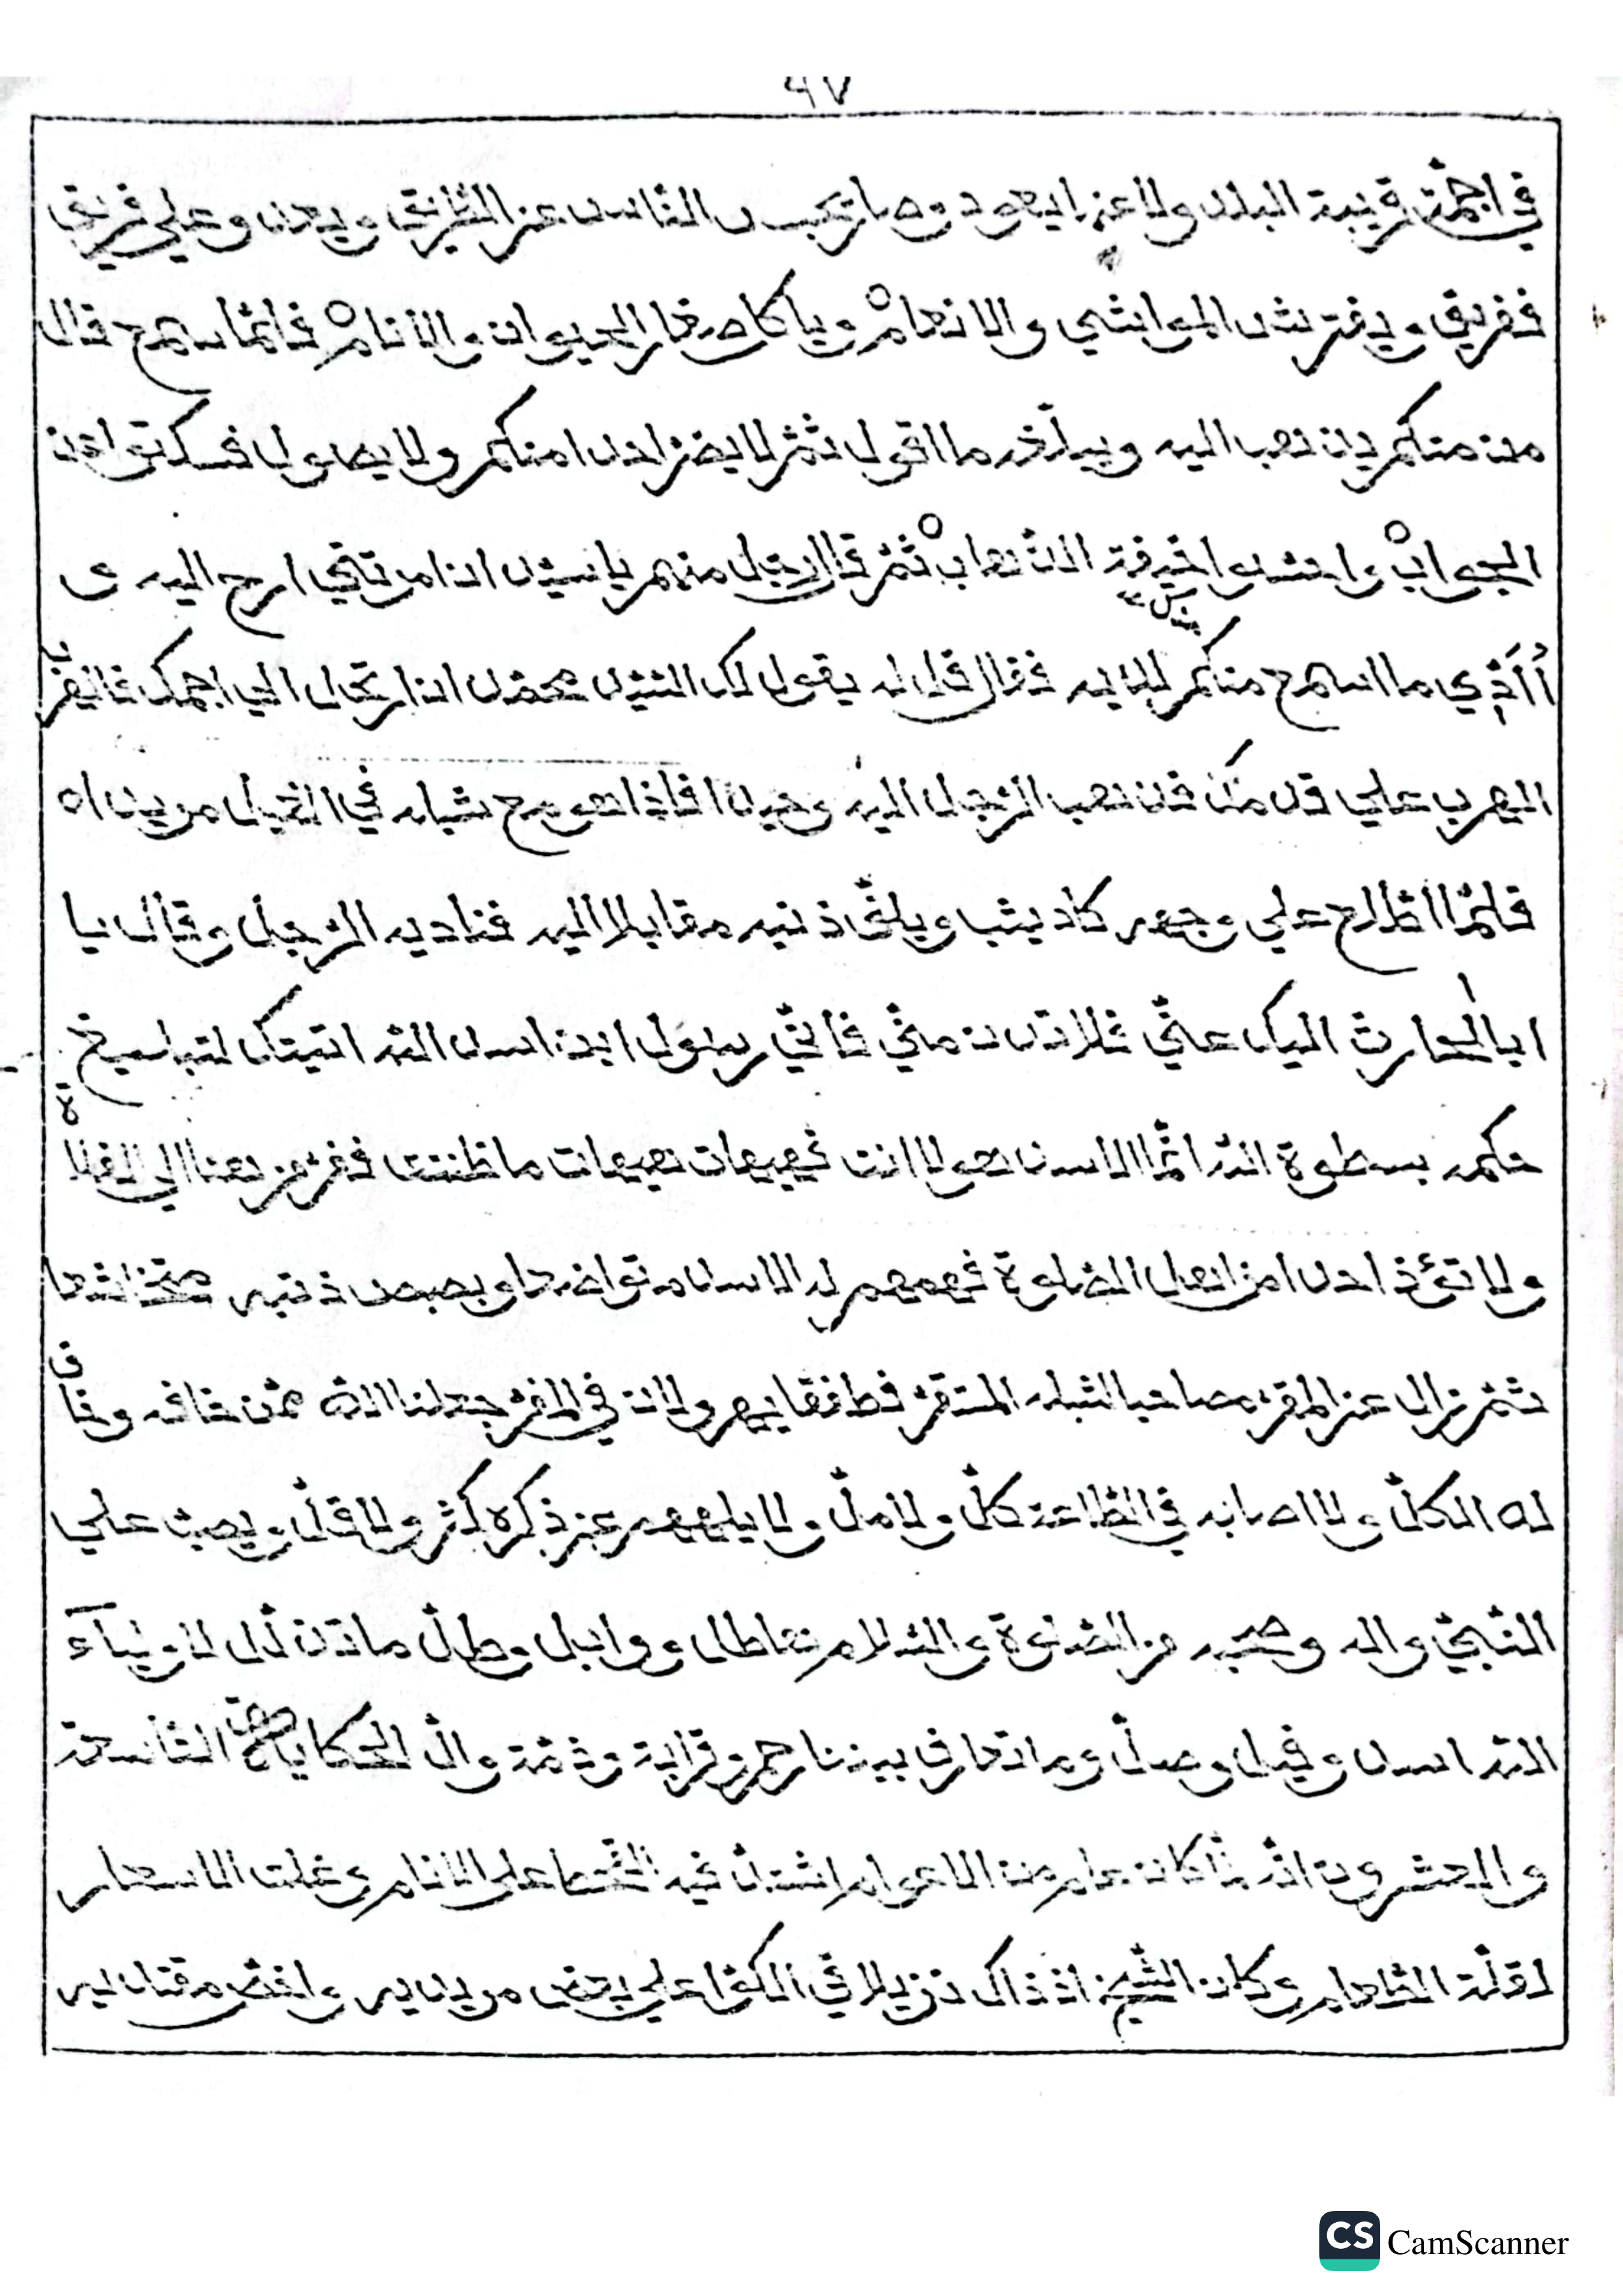 ٩٧
في اجمة قريبة البلد ولا عنها يعود وصار يحبس الناس عن الطريق ويعدو علي فريق
ففريق ويفترس المواشي والانعام وياكل صغار الحيوان والانام فلما سمع قال
من منكم يذهب اليه ويبلغه ما اقول ثم لا يضر احدا منكم ولا يصول فسكتوا عن
الجواب واحتسوا خيفة الذهاب ثم قال رجل منهم ياسيدي انا مرتقي ارح اليه ى
أأذي ما اسمع منكم لديه فقال قل له يقول لك الشيخ محمد انا ارتحل الي اجمك فالفر
المهرب علي قدمك فذهب الرجل اليه وحيدا فاذا هو مع شباله في الغيل مريداه
فلما اطلع علي وجهه كاد يثب ويلق ذنبه مقابلا اليه فناديه الرجل وقال يا
ابا الحارث اليك عني ثلاثدن مني فاني رسول ابن اسد الله اتيتك لتباسيغ
حكمه بسطوة الله انما الاسد هو لا انت فهيهات هيهات ما ظننت ففر من هنا الي الفلاة
ولا تؤذ احدا من اهل الصلوة فهمهم له الاسد متواضعا وبصبص ذنبه متخاشعا
ثم زال عن المقر مصاحبا لشبله المستقر فطفقا يهرولان في المفر جعلنا الله ممن خافه وخاف
له الكل ولا اصابه في الطاعة كل ولا مل ولا يلهيه عن ذكره كثر ولا قل ويصب علي
النبي واله وصحبه من الصلوة والسلام هاطل ووابل وطل ما تذلل لاولياء
الله اسد وفيل وصل وما تعارف بيننا رحم وقرابة وذمة وال الحكاية التاسعة
والعشرون انه لما كان عام من الاعوام اشتد فيه القحط علي الانام وغلت الاسعار
لقلة الطعام وكان الشيخ اذ ذاك نزيلا في الكوا علي بعض مريديه وافض مقتديه
CS CamScanner